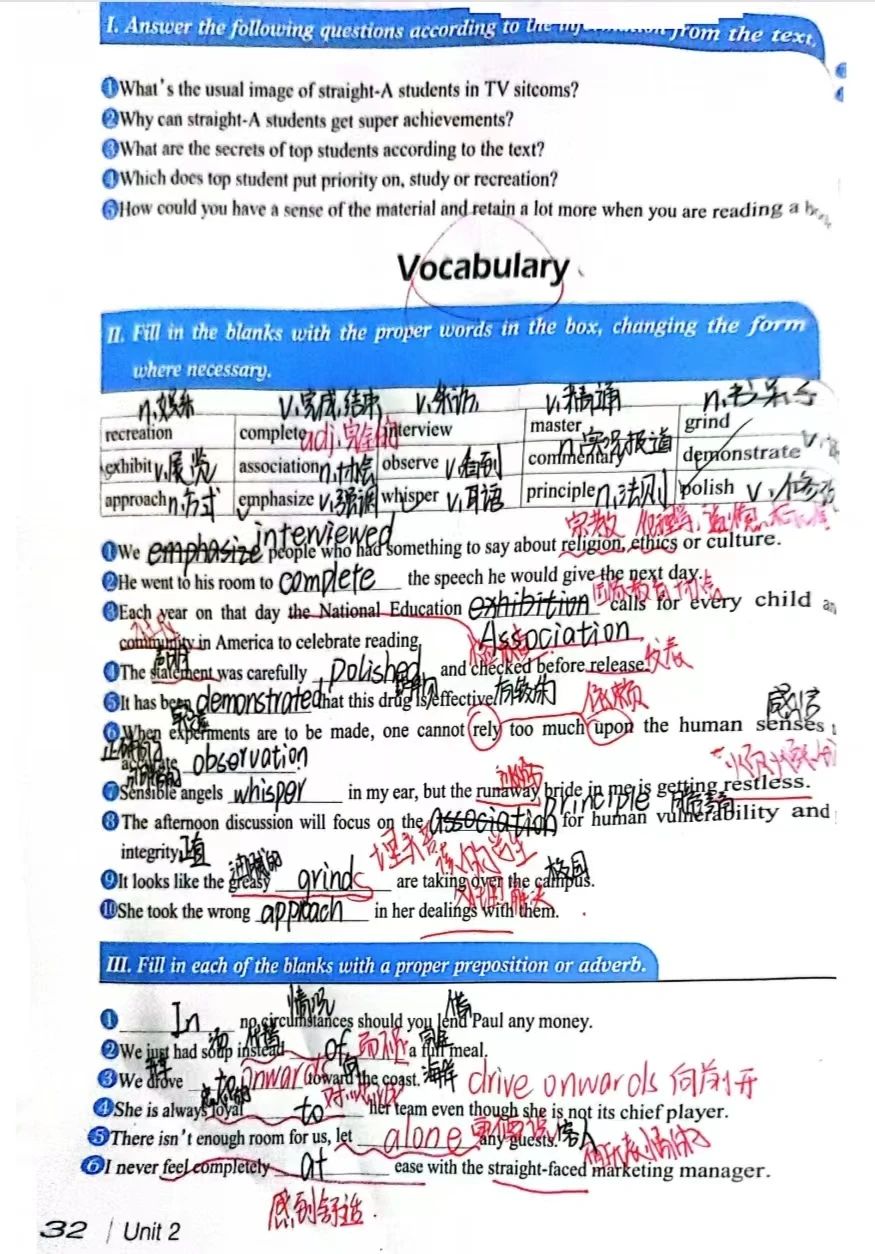 I. Answer the following questions according to the information from the text.
①What's the usual image of straight-A students in TV sitcoms?
②Why can straight-A students get super achievements?
③What are the secrets of top students according to the text?
④Which does top student put priority on, study or recreation?
⑤How could you have a sense of the material and retain a lot more when you are reading a
Vocabulary
II. Fill in the blanks with the proper words in the box, changing the form
where necessary.
n.娱乐 v.完成,结束 v.采访 v.精通 n.书呆子
recreation complete adj.完全的 interview master grind
n.实况报道
exhibit v.展览 association n.协会 observe v.看到 commentary demonstrate v.
approach n.方式 emphasize v.强调 whisper v.耳语 principle n.法则 polish v.修改
宗教
interviewed
①We emphasize people who had something to say about religion, ethics or culture.
②He went to his room to complete the speech he would give the next day.
③Each year on that day the National Education exhibition calls for every child
Association
community in America to celebrate reading.
声明 检查 发表
④The statement was carefully polished and checked before release.
⑤It has been demonstrated that this drug is effective. 有效的 依赖
感官
⑥When experiments are to be made, one cannot rely too much upon the human senses
accurate observation
⑦Sensible angels whisper in my ear, but the runaway bride in me is getting restless.
principle 脆弱
⑧The afternoon discussion will focus on the association for human vulnerability and
integrity. 正直
油腻的 校园
⑨It looks like the greasy grinds are taking over the campus.
⑩She took the wrong approach in her dealings with them.
III. Fill in each of the blanks with a proper preposition or adverb.
情况 借
① In no circumstances should you lend Paul any money.
汤 代替 而不
②We just had soup instead of a full meal.
开车 向
③We drove to onwards toward the coast. 海岸 drive onwards 向前开
忠诚的
④She is always loyal to her team even though she is not its chief player.
更何况 客人
⑤There isn't enough room for us, let alone any guests.
⑥I never feel completely at ease with the straight-faced marketing manager.
感到舒适.
32 / Unit 2